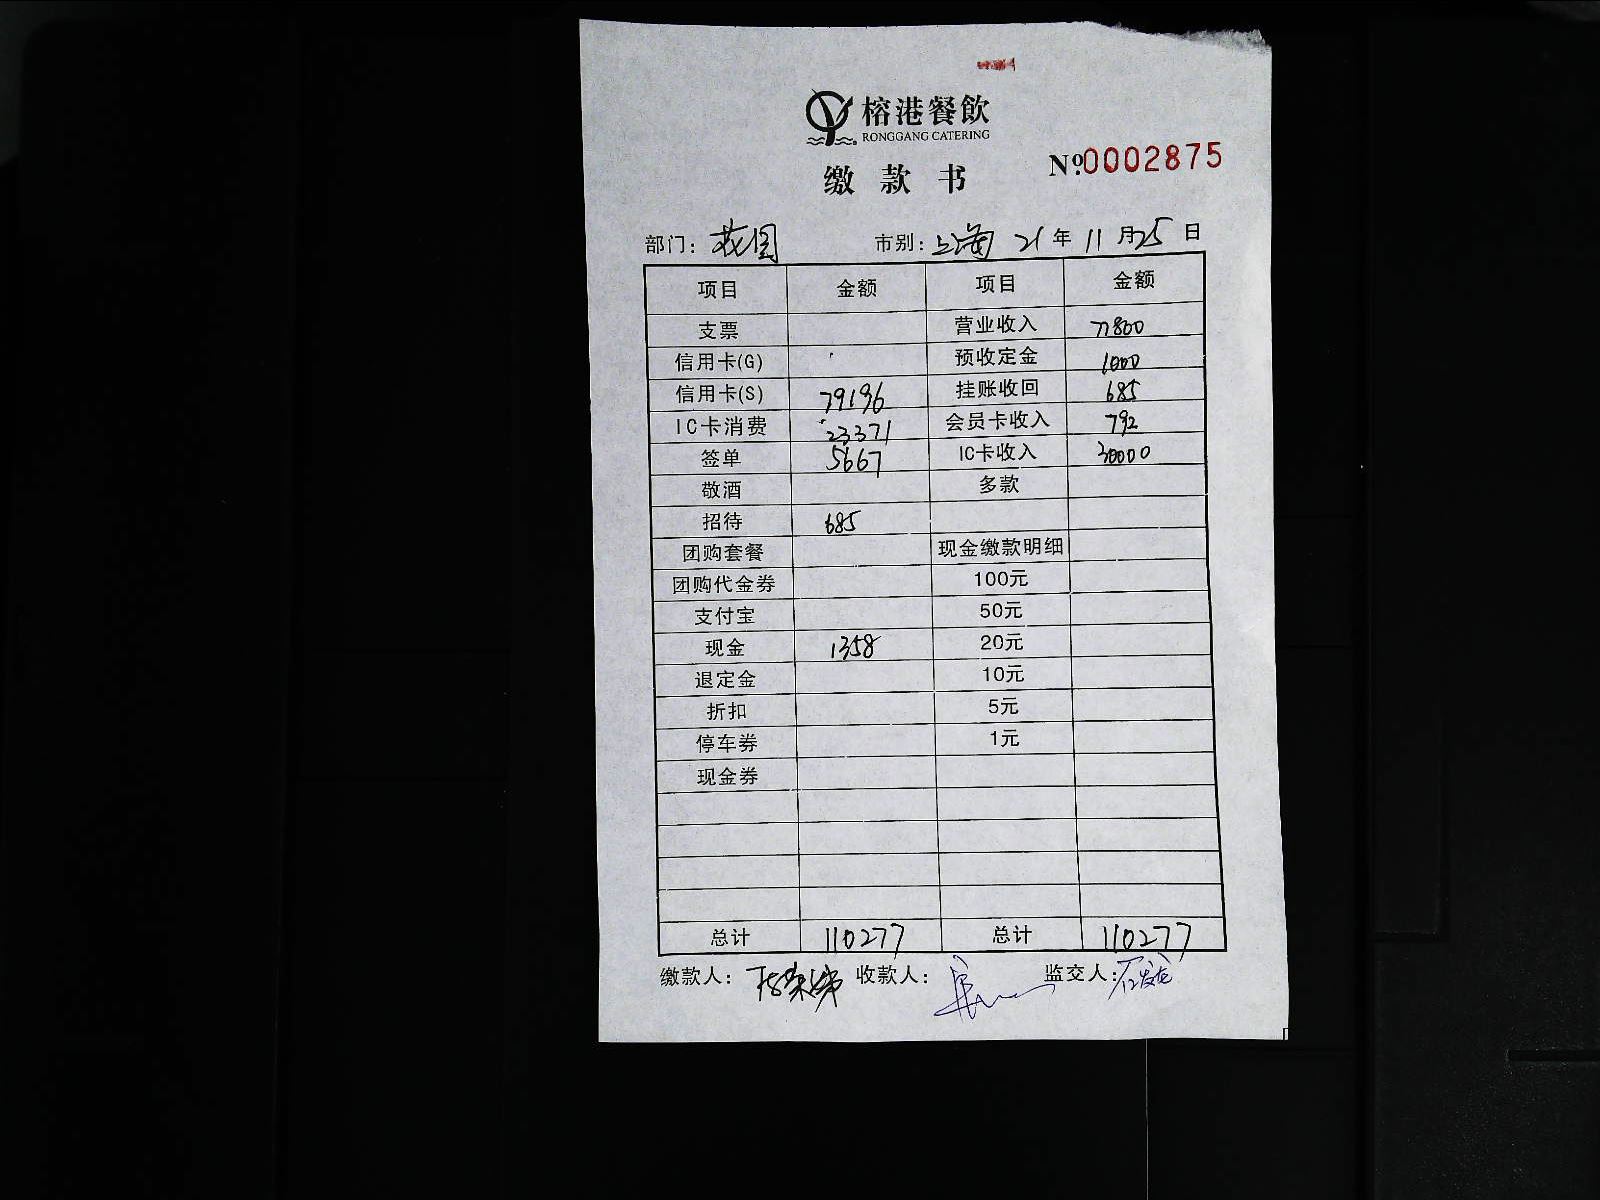 榕港餐飲
RONGGANG CATERING
缴款书 Nº.0002875
部门: 花园 市别: 上海 21年 11月25日
项目 金额 项目 金额
支票 营业收入 77800
信用卡(G) 预收定金 1000
信用卡(S) 79196 挂账收回 685
IC卡消费 23371 会员卡收入 792
签单 5667 IC卡收入 30000
敬酒 多款
招待 685
团购套餐 现金缴款明细
团购代金券 100元
支付宝 50元
现金 1358 20元
退定金 10元
折扣 5元
停车券 1元
现金券
总计 110277 总计 110277
缴款人: 收款人: 监交人: